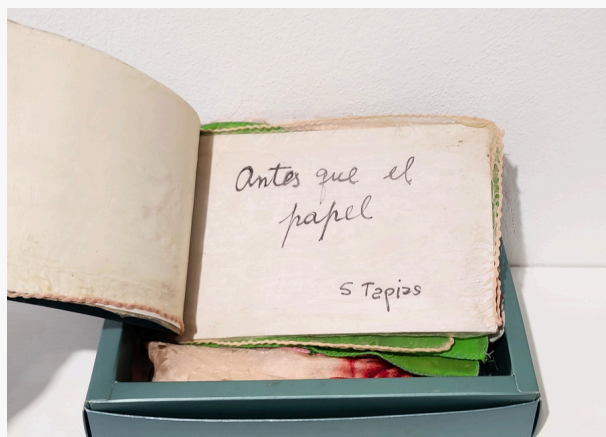 Antes que el
papel
S Tapias